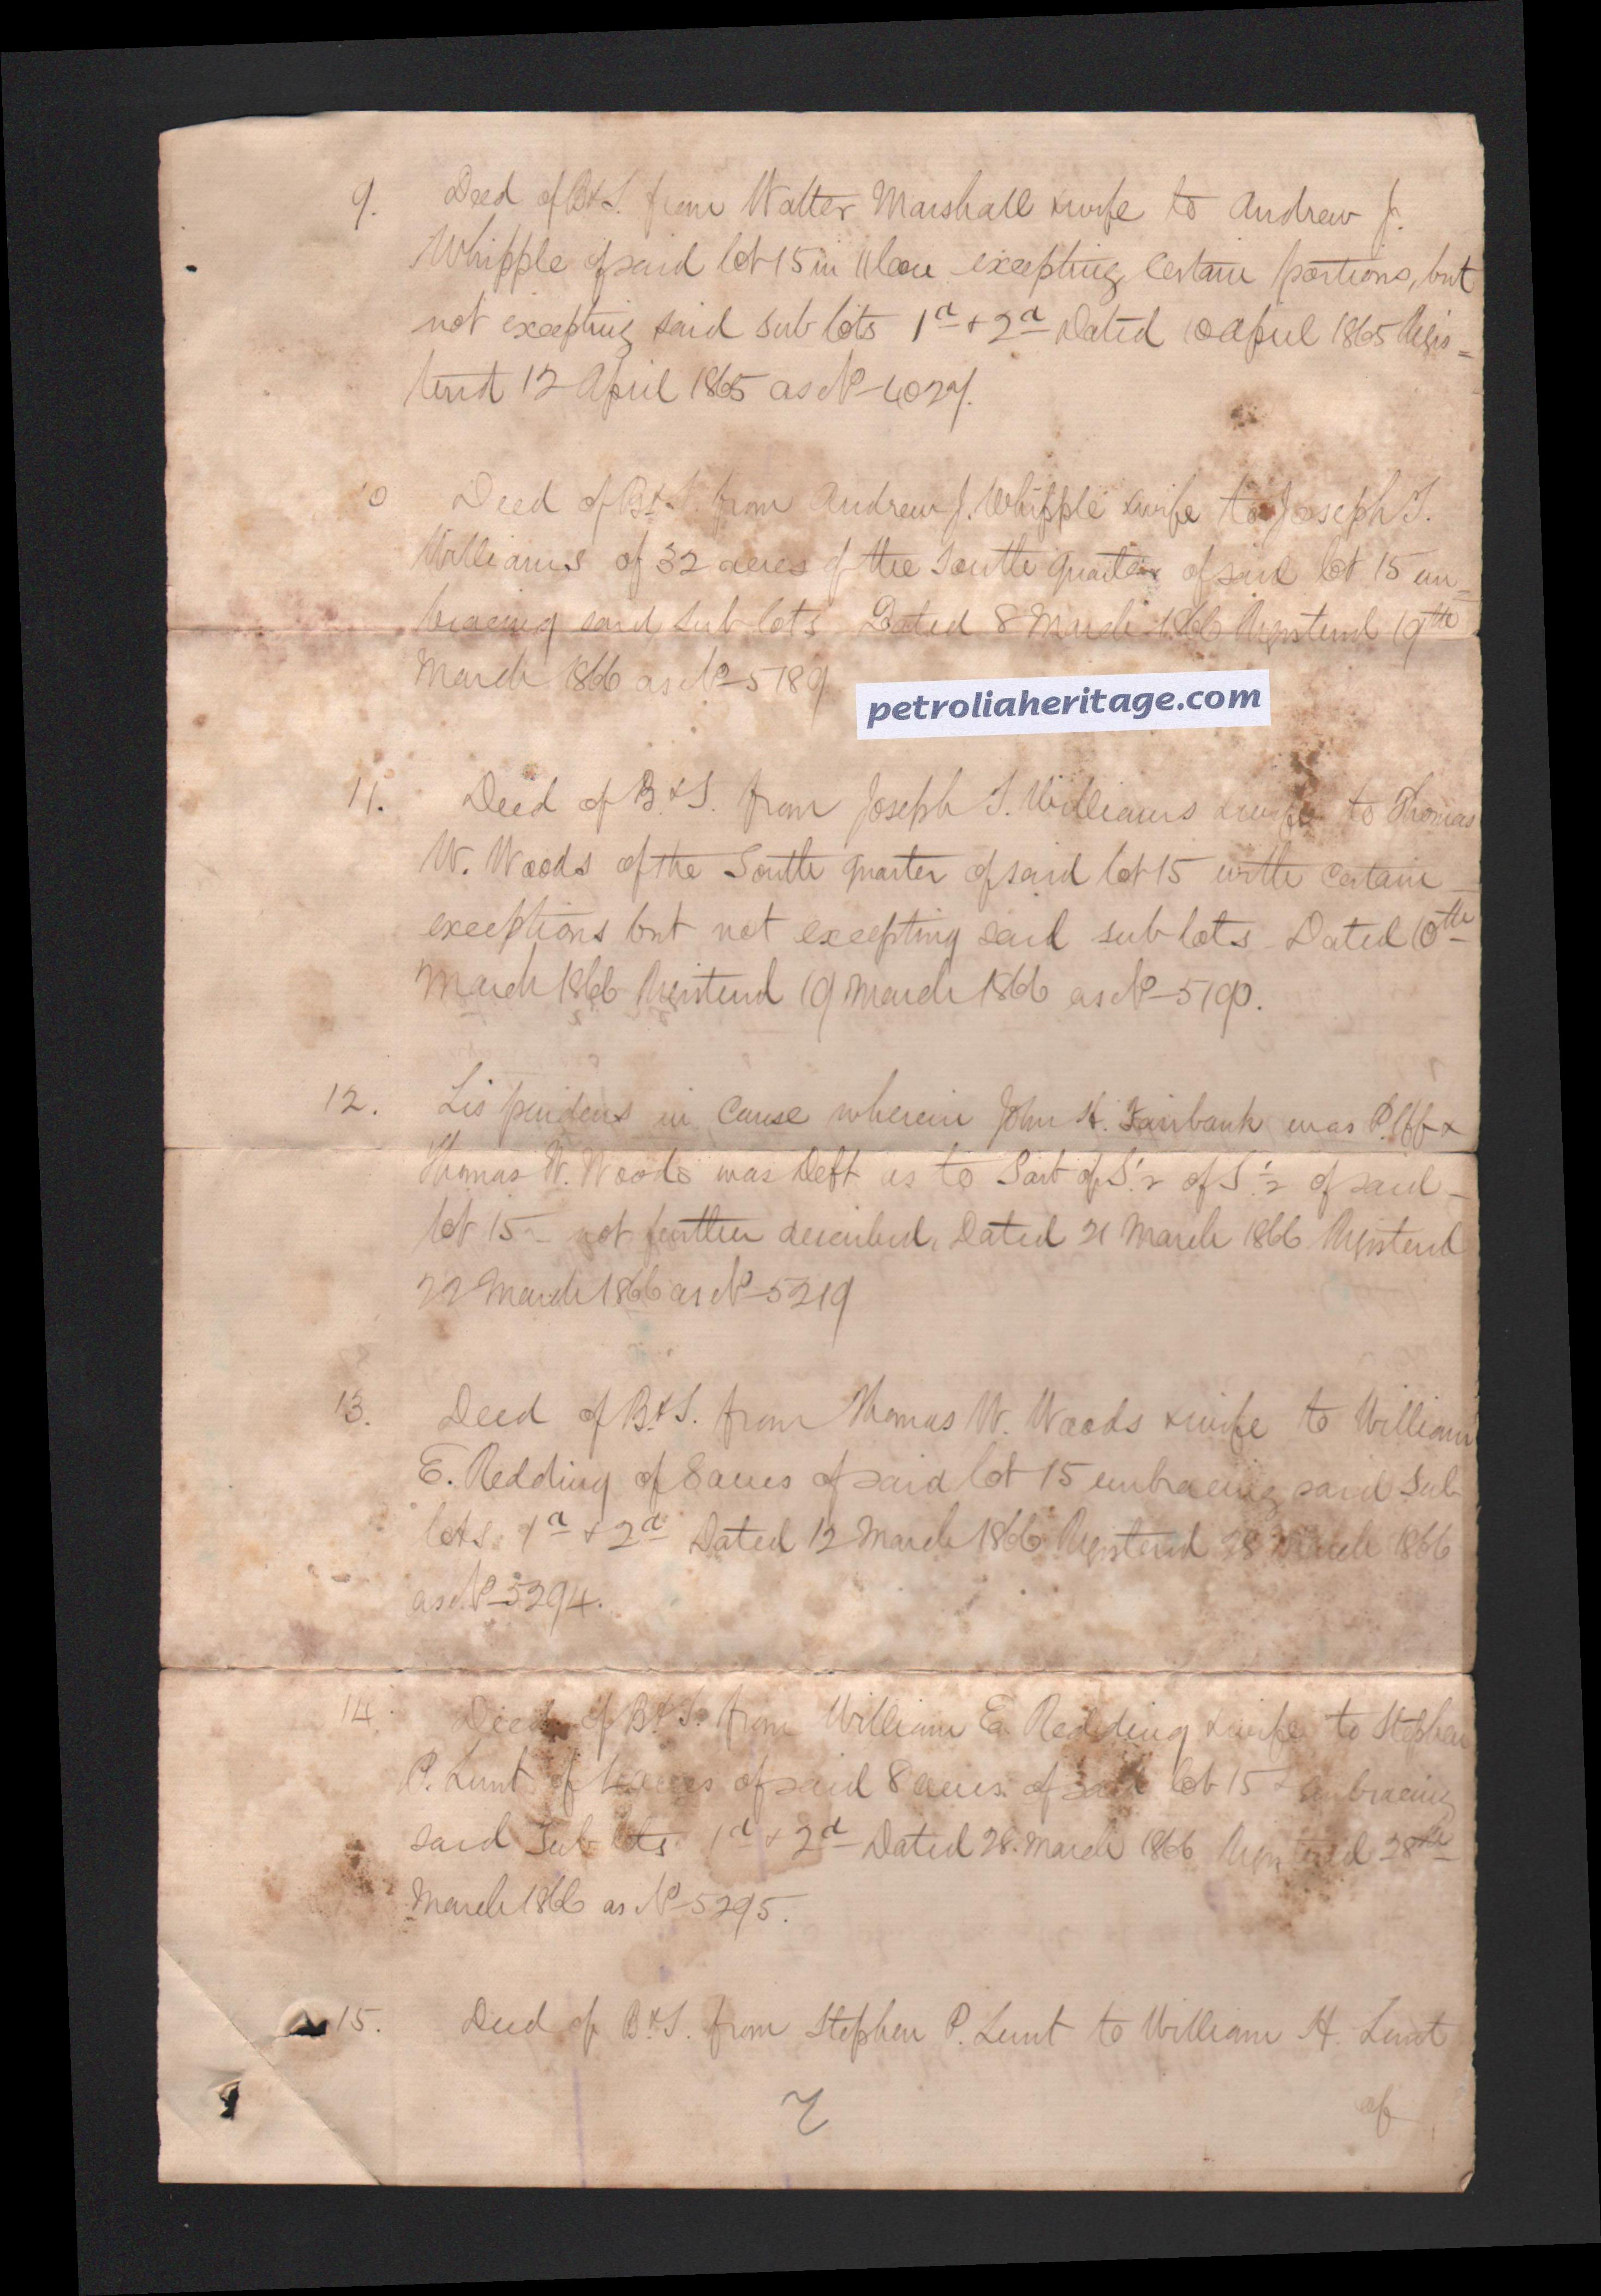 9. Deed of B.&S. from Walter Marshall & wife to Andrew J.
Whipple of said lot 15 in 11 Con excepting certain portions, but
not excepting said sub lots 1ᵃ & 2ᵃ Dated 10 April 1865 Regis=
tered 12 April 1865 as No 4027.
10 Deed of B.&S. from Andrew J. Whipple & wife to Joseph T.
Williams of 32 acres of the South quarter of said lot 15 em=
bracing said sub lots Dated 8 March 1866 Registered 19th
March 1866 as No 5189
petroliaheritage.com
11. Deed of B.&S. from Joseph T. Williams & wife to Thomas
W. Woods of the South quarter of said lot 15 with certain
exceptions but not excepting said sub lots Dated 10th
March 1866 Registered 19 March 1866 as No 5190.
12. Lis pendens in Cause wherein John H. Fairbank was Plff &
Thomas W. Woods was Deft as to Part of S.½ of S.½ of said
lot 15 – not further described, Dated 21 March 1866 Registered
22 March 1866 as No 5219
13. Deed of B.&S. from Thomas W. Woods & wife to William
E. Redding of 8 acres of said lot 15 embracing said sub
lots 1ᵃ & 2ᵃ Dated 12 March 1866 Registered 28 March 1866
as No 5294.
14. Deed of B.&S. from William E. Redding & wife to Stephen
P. Lunt of acres of said 8 acres of said lot 15 & embracing
said Sub lots 1ᵃ & 2ᵃ Dated 28 March 1866 Registered 28th
March 1866 as No 5295.
15. Deed of B.&S. from Stephen P. Lunt to William H. Lunt
of